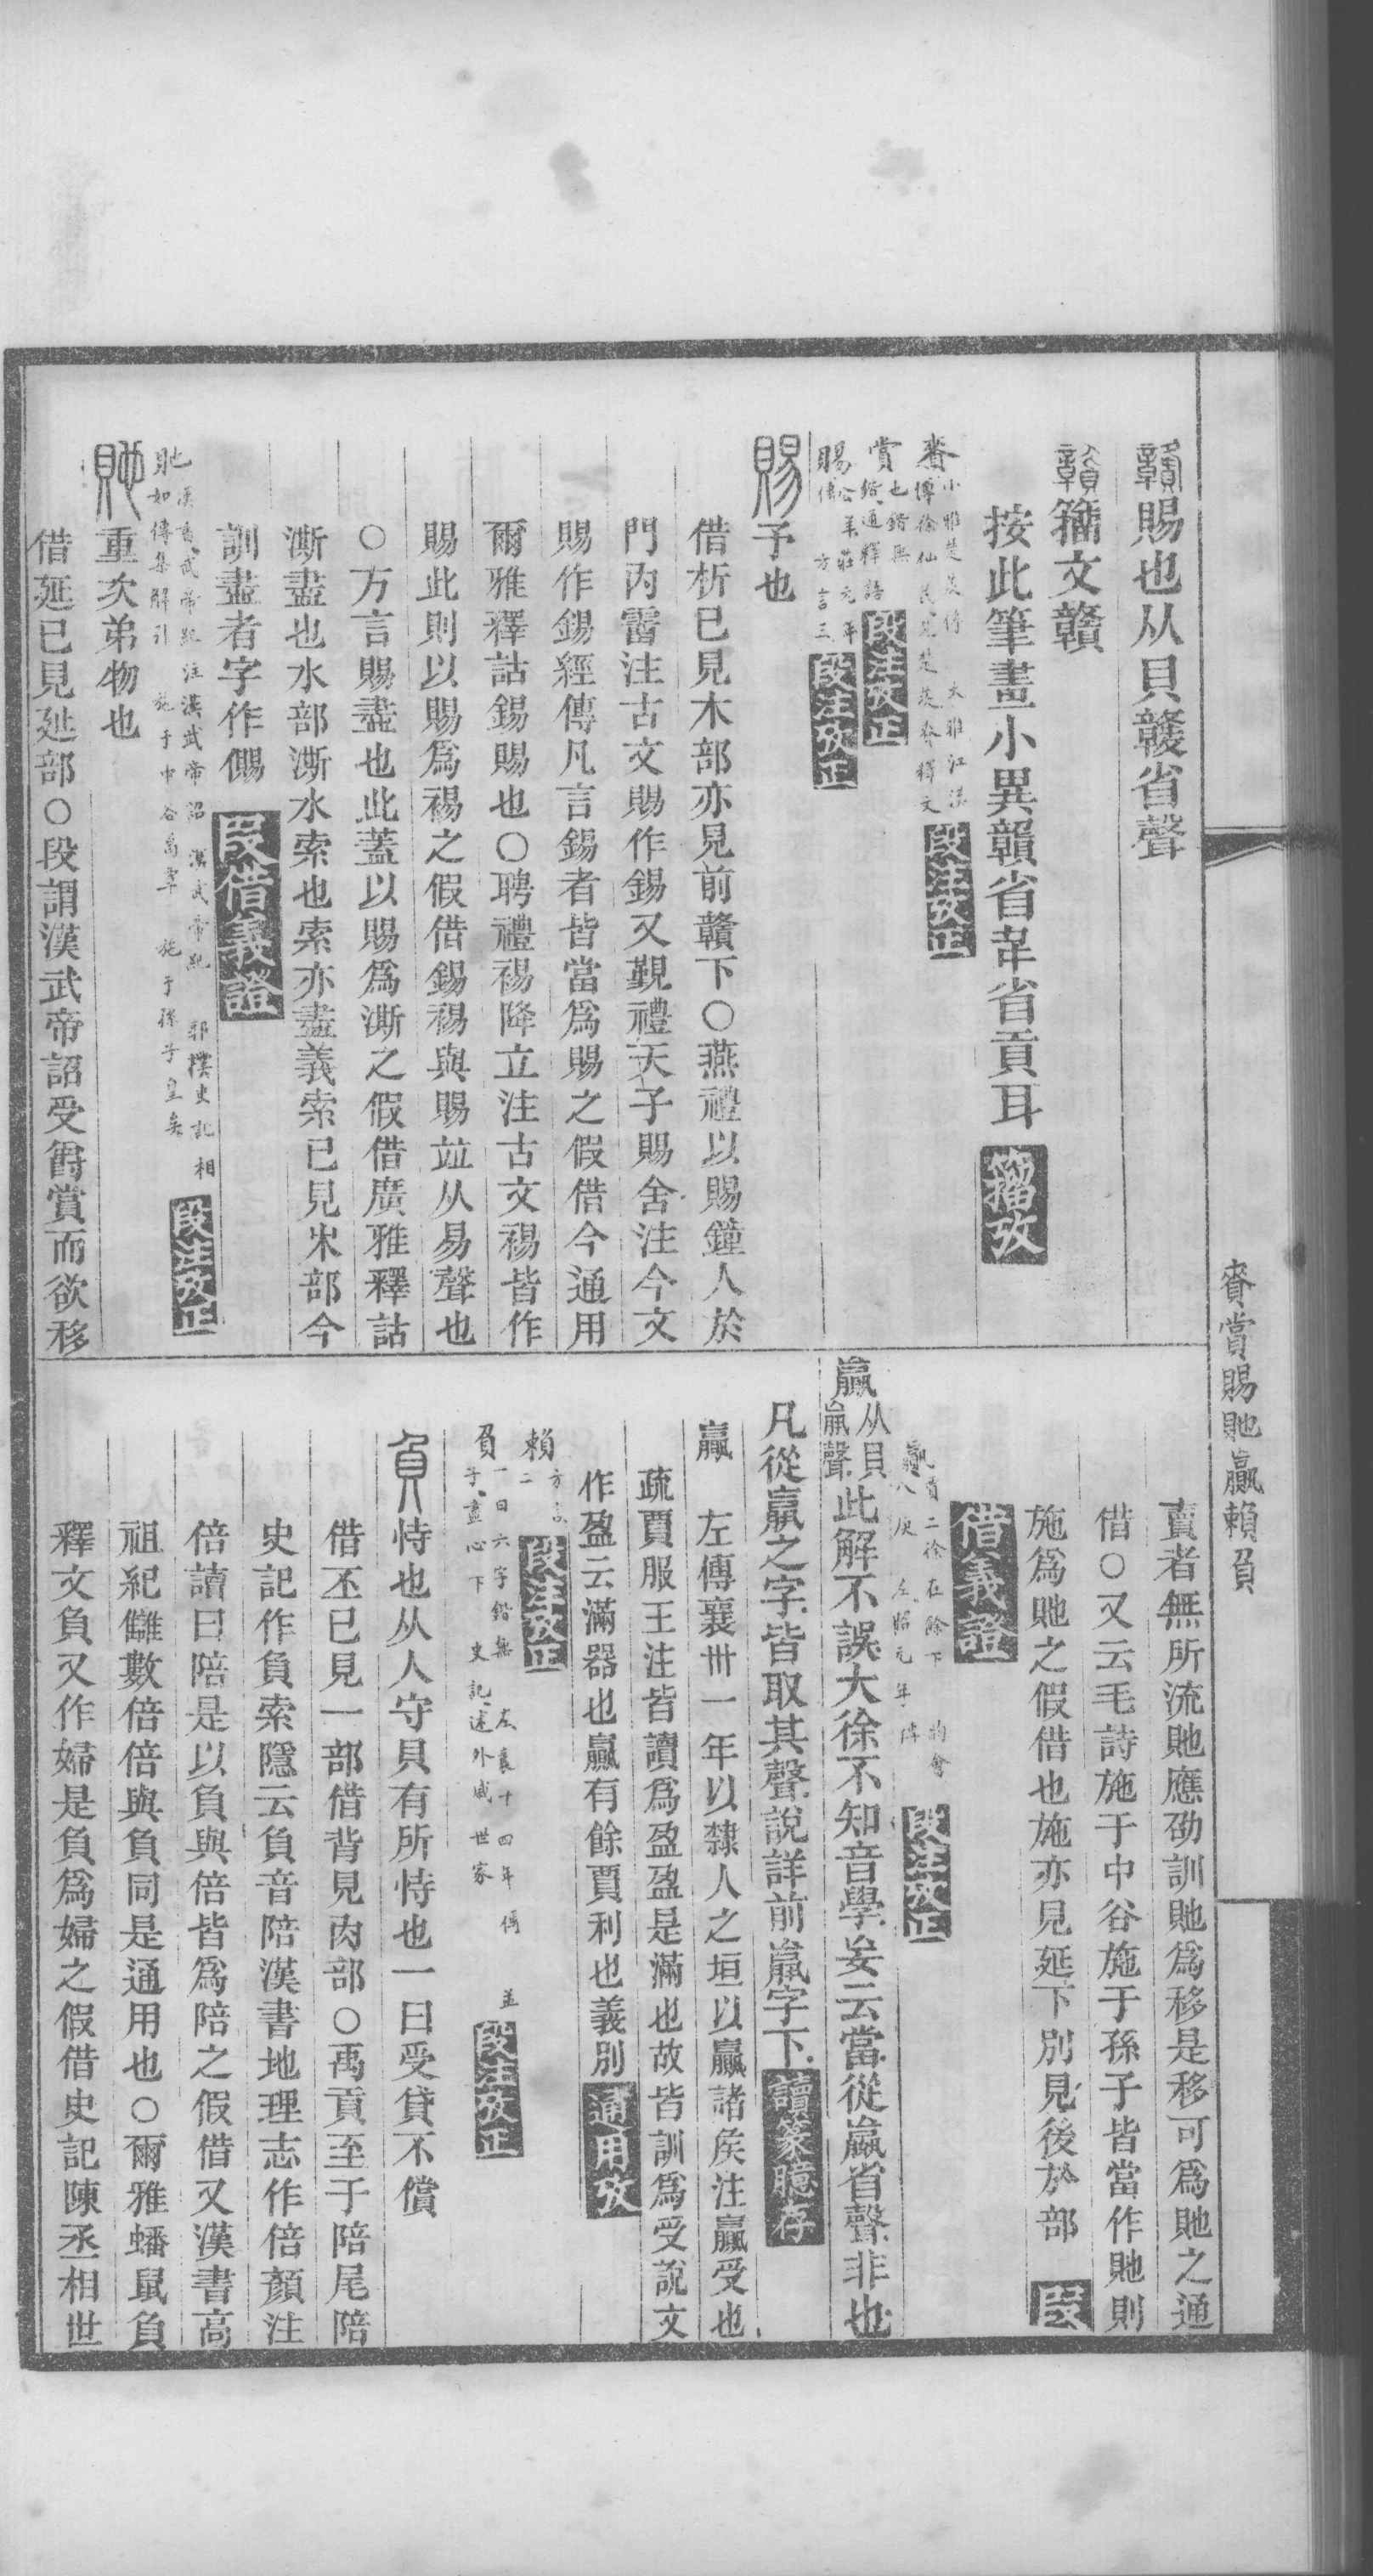 贛賜也从貝竷省聲
贛籒文贛
按此筆畫小異贛省夅省貢耳 籒攷
賚 小雅楚茨傳 大雅江漢
傳徐仙民楚茨賚釋文 段注攷正
賞 也鍇無
鍇通釋語 段注攷正
賜 公羊莊元年
傳 方言三 段注攷正
賜予也
借析已見木部亦見前贛下○燕禮以賜鐘人於
門內霤注古文賜作錫又覲禮天子賜舍注今文
賜作錫經傳凡言錫者皆當爲賜之假借今通用
爾雅釋詁錫賜也○聘禮裼降立注古文裼皆作
賜此則以賜爲裼之假借錫裼與賜竝从易聲也
○方言賜盡也此蓋以賜爲澌之假借廣雅釋詁
澌盡也水部澌水索也索亦盡義索已見𣎵部今
訓盡者字作儩 段借義證
貤 漢書武帝紀注漢武帝詔 漢武帝紀 郭璞史記相
如傳集解引 施于中谷葛覃 施于孫子皇矣 段注攷正
貤重次弟物也
借延已見㢟部○段謂漢武帝詔受爵賞而欲移
賚賞賜貤贏賴負
賣者無所流貤應劭訓貤爲移是移可爲貤之通
借○又云毛詩施于中谷施于孫子皆當作貤則
施爲貤之假借也施亦見延下別見後㫃部 段
借義證
贏 貝二徐在賒下 韵會
八庚 左昭元年傳 段注攷正
贏 从貝
𣎆聲 此解不誤大徐不知音學妄云當從嬴省聲非也
凡從𣎆之字皆取其聲說詳前𣎆字下 讀篆臆存
贏 左傳襄卅一年以隸人之垣以贏諸矦注贏受也
疏賈服王注皆讀爲盈盈是滿也故皆訓爲受說文
作盈云滿器也贏有餘賈利也義別 通用攷
賴 方言
二 段注攷正
負 一曰六字鍇無 左襄十四年傳 孟
子盡心下 史記述外戚世家 段注攷正
負恃也从人守貝有所恃也一曰受貸不償
借丕已見一部借背見肉部○禹貢至于陪尾陪
史記作負索隱云負音陪漢書地理志作倍顏注
倍讀曰陪是以負與倍皆爲陪之假借又漢書高
祖紀讎數倍倍與負同是通用也○爾雅蟠鼠負
釋文負又作婦是負爲婦之假借史記陳丞相世